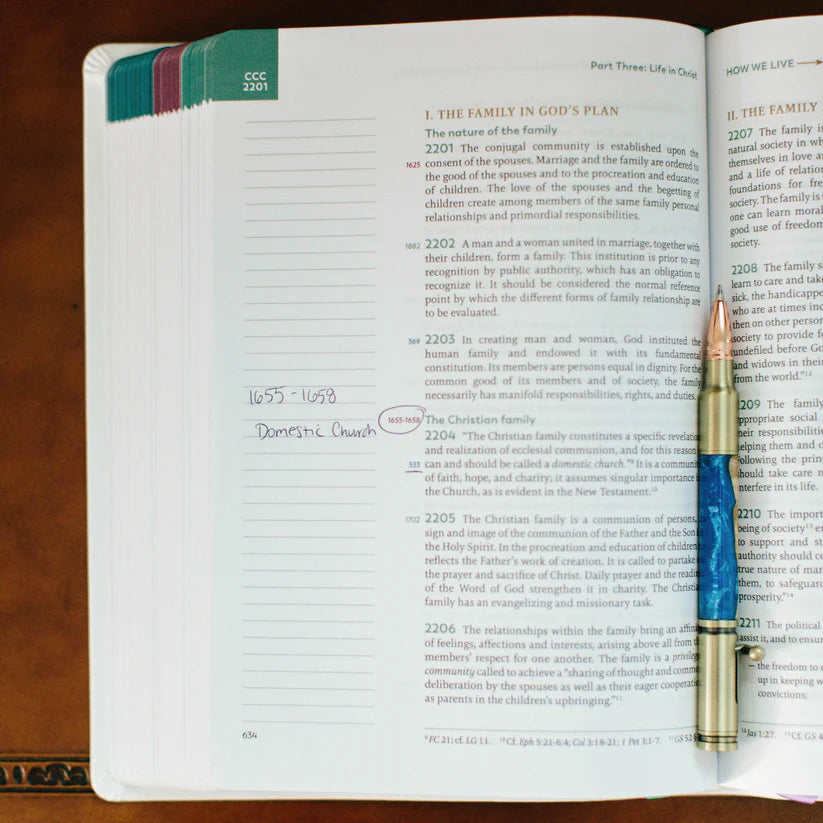 CCC
2201
Part Three: Life in Christ
I. THE FAMILY IN GOD'S PLAN
The nature of the family
2201 The conjugal community is established upon the
1625 consent of the spouses. Marriage and the family are ordered to
the good of the spouses and to the procreation and education
of children. The love of the spouses and the begetting of
children create among members of the same family personal
relationships and primordial responsibilities.
1882 2202 A man and a woman united in marriage, together with
their children, form a family. This institution is prior to any
recognition by public authority, which has an obligation to
recognize it. It should be considered the normal reference
point by which the different forms of family relationship are
to be evaluated.
369 2203 In creating man and woman, God instituted the
human family and endowed it with its fundamental
constitution. Its members are persons equal in dignity. For the
common good of its members and of society, the family
necessarily has manifold responsibilities, rights, and duties.
1655 - 1658
Domestic Church
1655-1658 The Christian family
2204 "The Christian family constitutes a specific revelation
and realization of ecclesial communion, and for this reason
533 can and should be called a domestic church."9 It is a
of faith, hope, and charity; it assumes singular importance
the Church, as is evident in the New Testament.10
1702 2205 The Christian family is a communion of persons,
sign and image of the communion of the Father and the Son
the Holy Spirit. In the procreation and education of children
reflects the Father's work of creation. It is called to partake
the prayer and sacrifice of Christ. Daily prayer and the
of the Word of God strengthen it in charity. The
family has an evangelizing and missionary task.
2206 The relationships within the family bring an
of feelings, affections and interests, arising above all from
members' respect for one another. The family is a
community called to achieve a "sharing of thought and
deliberation by the spouses as well as their eager
as parents in the children's upbringing."11
634
9 FC 21; cf. LG 11. 10 Cf. Eph 5:21-6:4; Col 3:18-21; 1 Pet 3:1-7. 11 GS 52
HOW WE LIVE
II. THE FAMILY
2207 The family is
natural society in
themselves in love
and a life of
foundations for
society. The family is
one can learn
good use of freedom
society.
2208 The family
learn to care and take
sick, the
who are at times
then on other
society to provide
undefiled before
and widows in their
from the world."12
The family
social
responsibilities
helping them and
Following the
should take care
interfere in its life.
2210 The
being of society13
to support and
authority should
true nature of
them, to safeguard
prosperity."14
2211 The political
assist it, and to
– the freedom to
up in keeping
convictions;
12 Jas 1:27. 13 Cf. GS